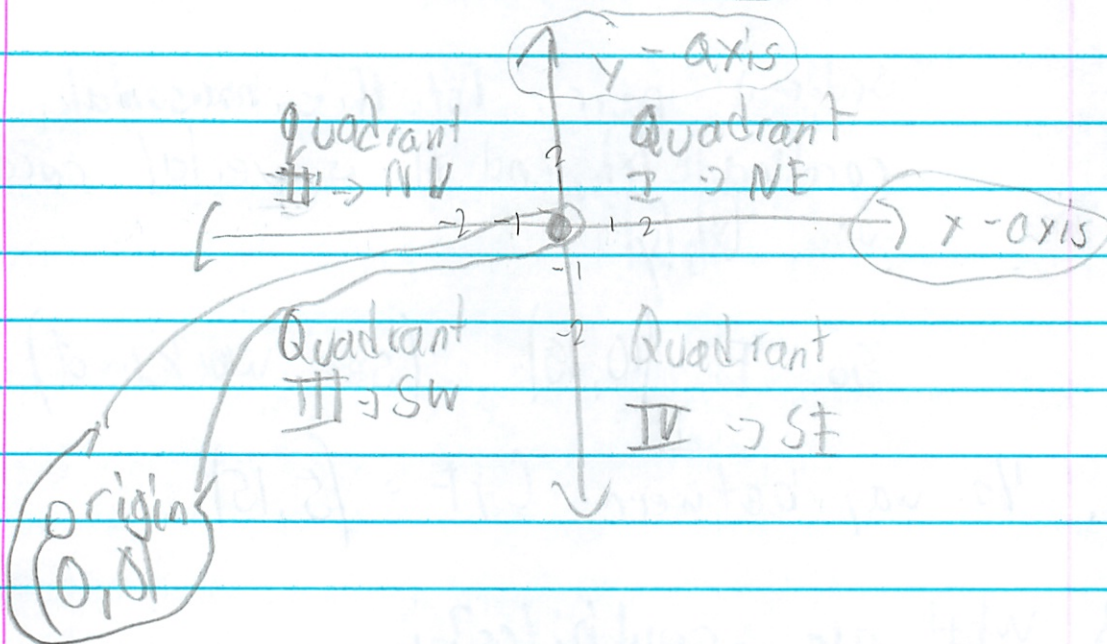 y - axis
Quadrant
II → NW
Quadrant
I → NE
2
-2 -1 1 2
x - axis
-1
-2
Quadrant
III → SW
Quadrant
IV → SE
origin
(0,0)